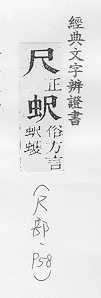 經典文字辨證書
尺正
蚇俗方言
蚇蠖
(尺部、P58)